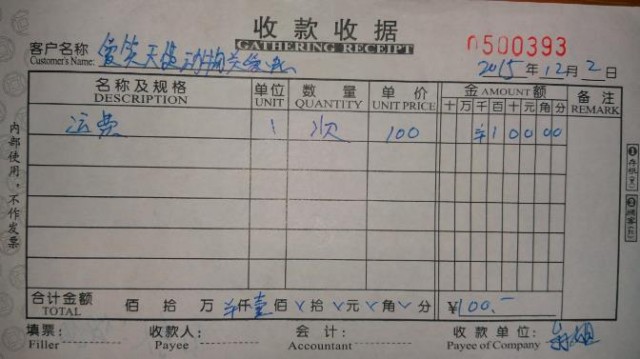 收款收据
GATHERING RECEIPT
0500393
客户名称 Customer's Name: 爱笑天使动物关爱
2015年12月2日
名称及规格 DESCRIPTION 单位 UNIT 数量 QUANTITY 单价 UNIT PRICE 金额 AMOUNT 十万千百十元角分 备注 REMARK
运费 1 次 100 ¥10000
内部使用,不作发票
合计金额 TOTAL 佰 拾 万 仟壹佰 拾 元 角 分 ¥100.-
填票: Filler 收款人: Payee 会计: Accountant 收款单位: Payee of Company